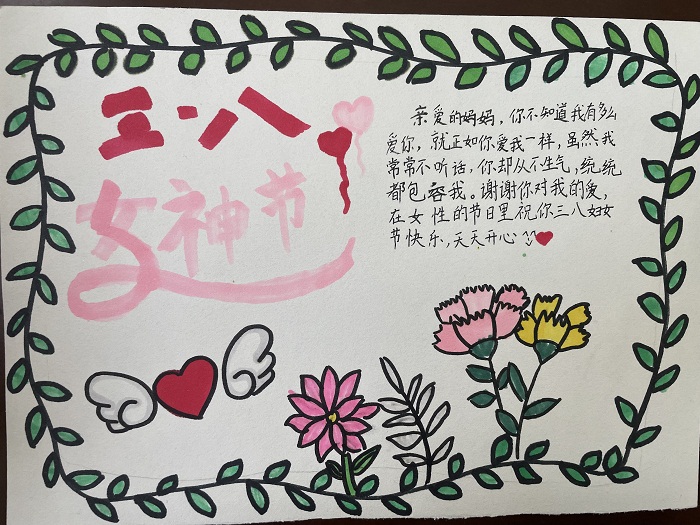 三·八
女神节
亲爱的妈妈，你不知道我有多么
爱你，就正如你爱我一样，虽然我
常常不听话，你却从不生气，统统
都包容我。谢谢你对我的爱，
在女性的节日里祝你三八妇女
节快乐，天天开心